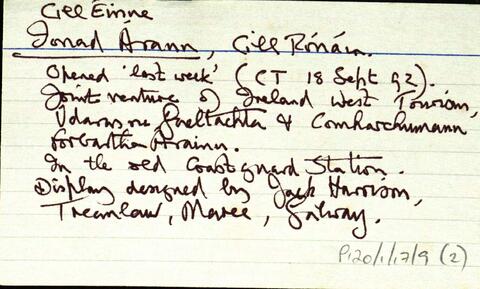 Cill Éinne
Ionad Árann, Cill Rónáin.
Opened 'last week' (CT 18 Sept 92).
Joint venture of Ireland West Tourism,
Udaras na Gaeltachta & Comharchumann
Forbartha Árainn.
In the old Coastguard Station.
Display designed by Jack Harrison,
Maree, Galway.
P120/1/17/9 (2)